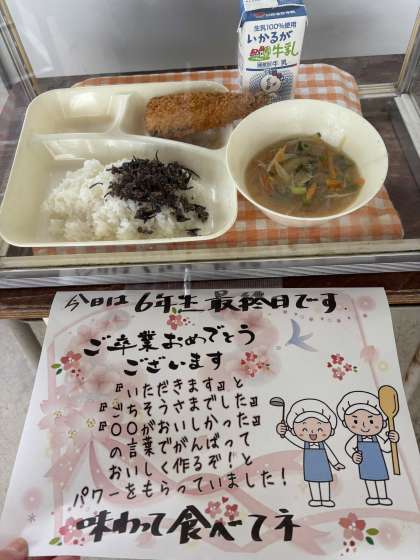 生乳100%使用
いかるが
牛乳
今日は 6年生 最終日です。
ご卒業おめでとう
ございます
『いただきます』と
『ごちそうさまでした』
『〇〇がおいしかった』
の言葉でがんばって
おいしく作るぞ!と
パワーをもらっていました!
味わって食べてネ